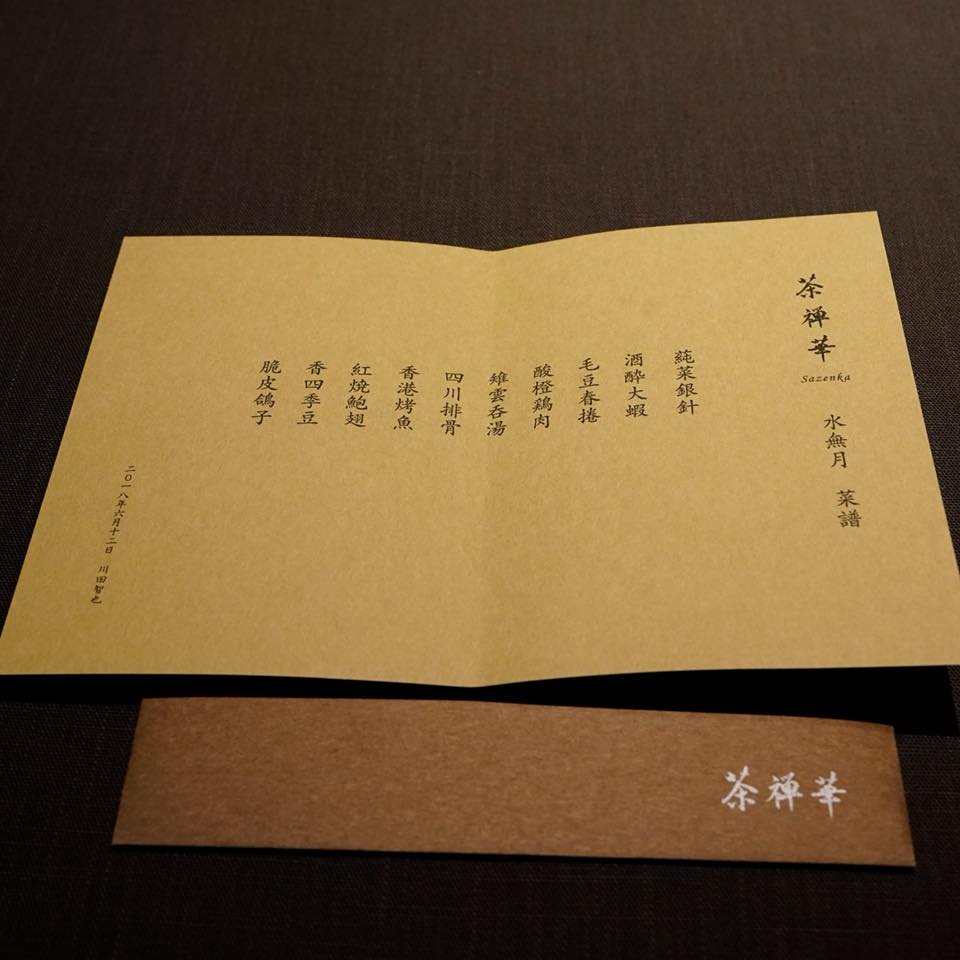 茶禅華
Sazenka
水無月 菜譜
蒓菜銀針
酒酔大蝦
毛豆春捲
酸橙鶏肉
雉雲呑湯
四川排骨
香港烤魚
紅焼鮑翅
香四季豆
脆皮鴿子
二〇一八年六月十二日 川田智也
茶禅華